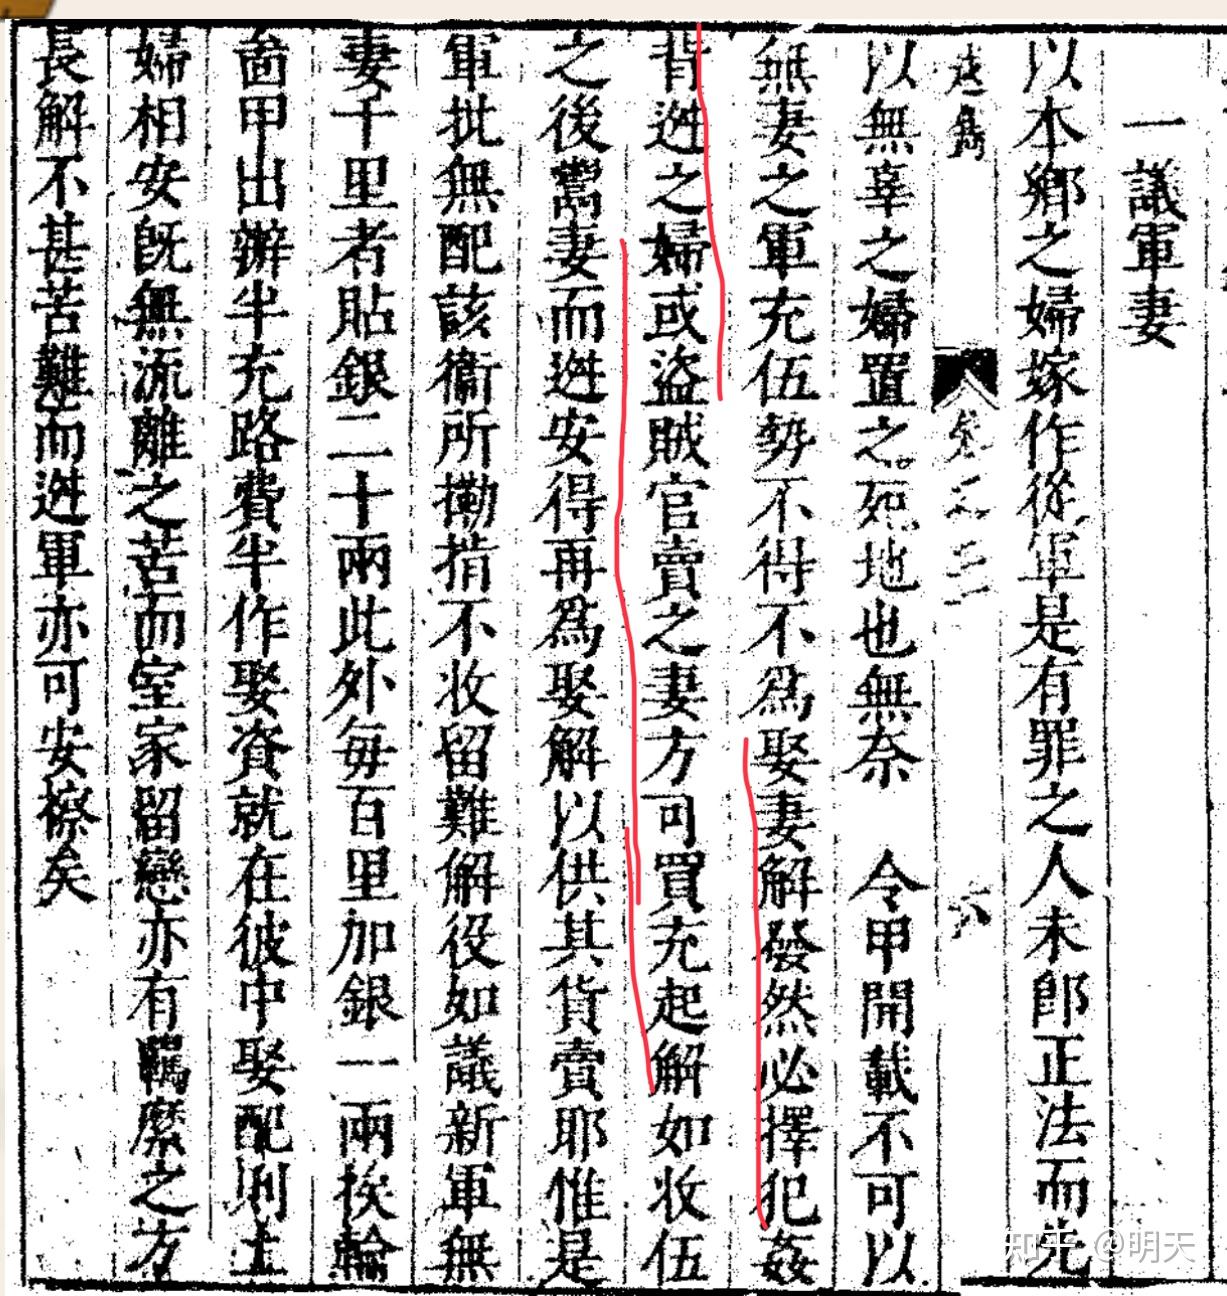 一議軍妻
以本鄉之婦嫁作從軍是有罪之人未卽正法而先
卷之三 六
以無辜之婦置之死地也無奈 令甲開載不可以
無妻之軍充伍勢不得不爲娶妻解發然必擇犯姦
背逃之婦或盜賊官賣之妻方可買充起解如收伍
之後鬻妻而逃安得再爲娶解以供其貨賣耶惟是
軍批無配該衞所勒掯不收留難解役如議新軍無
妻千里者貼銀二十兩此外每百里加銀一兩挨輪
啚甲出辦半充路費半作娶資就在彼中娶配則土
婦相安旣無流離之苦而室家留戀亦有羈縻之方
長解不甚苦難而逃軍亦可安㮛矣
知乎 @明天